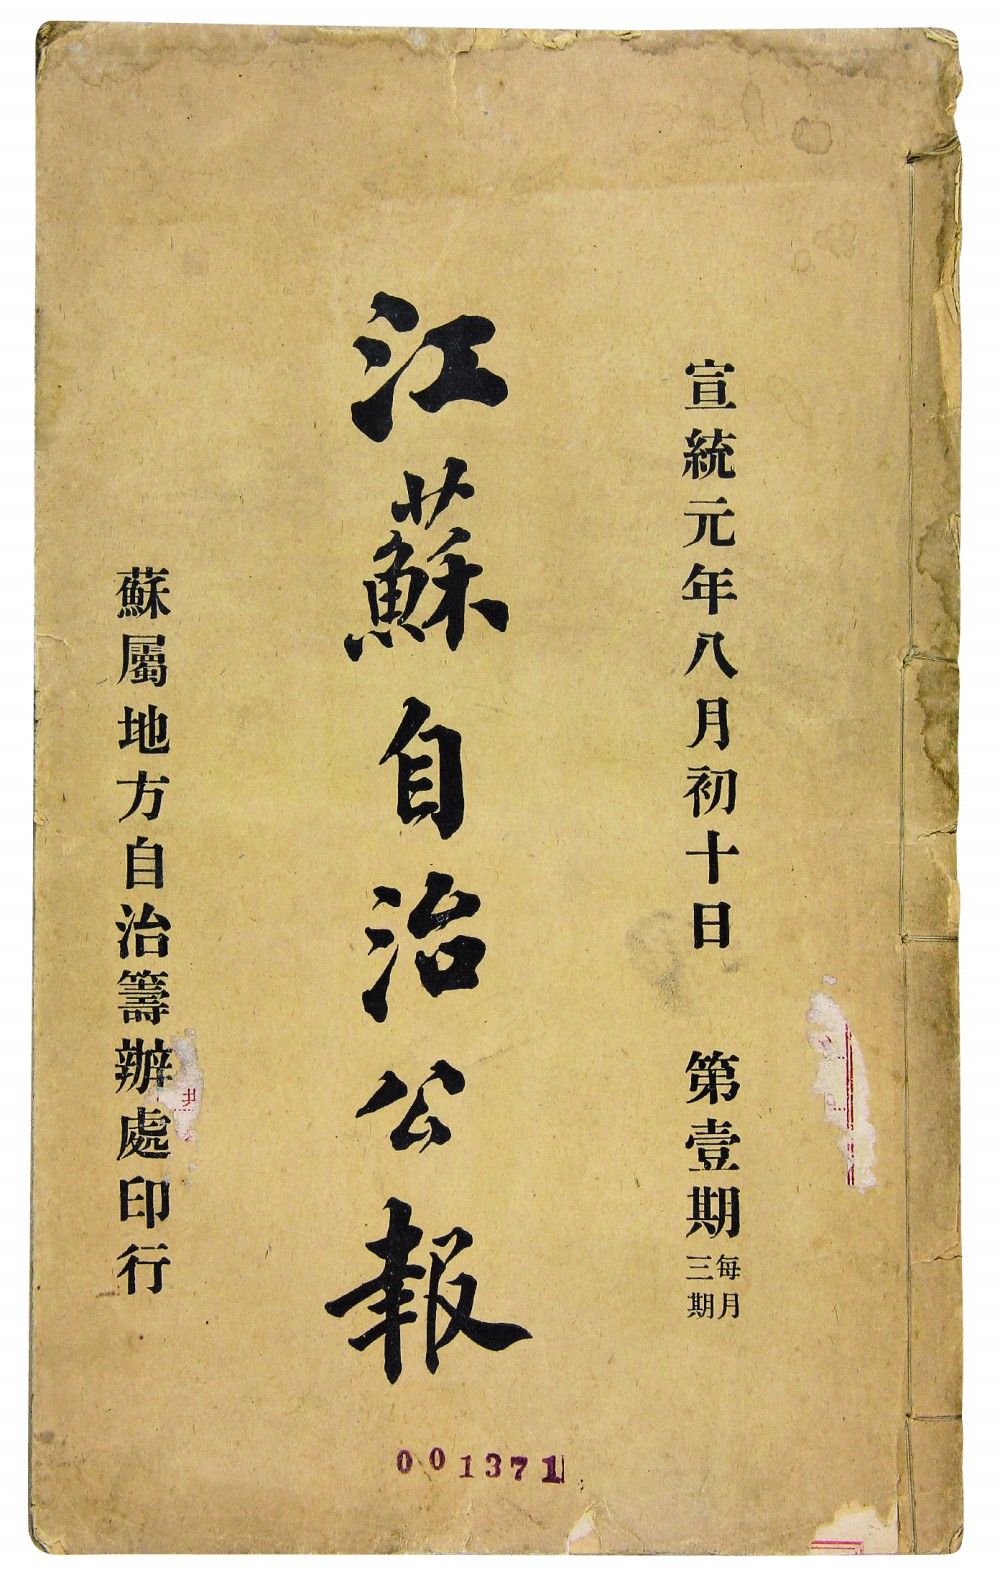 宣統元年八月初十日 第壹期
每月
三期
江蘇自治公報
蘇屬地方自治籌辦處印行
001371